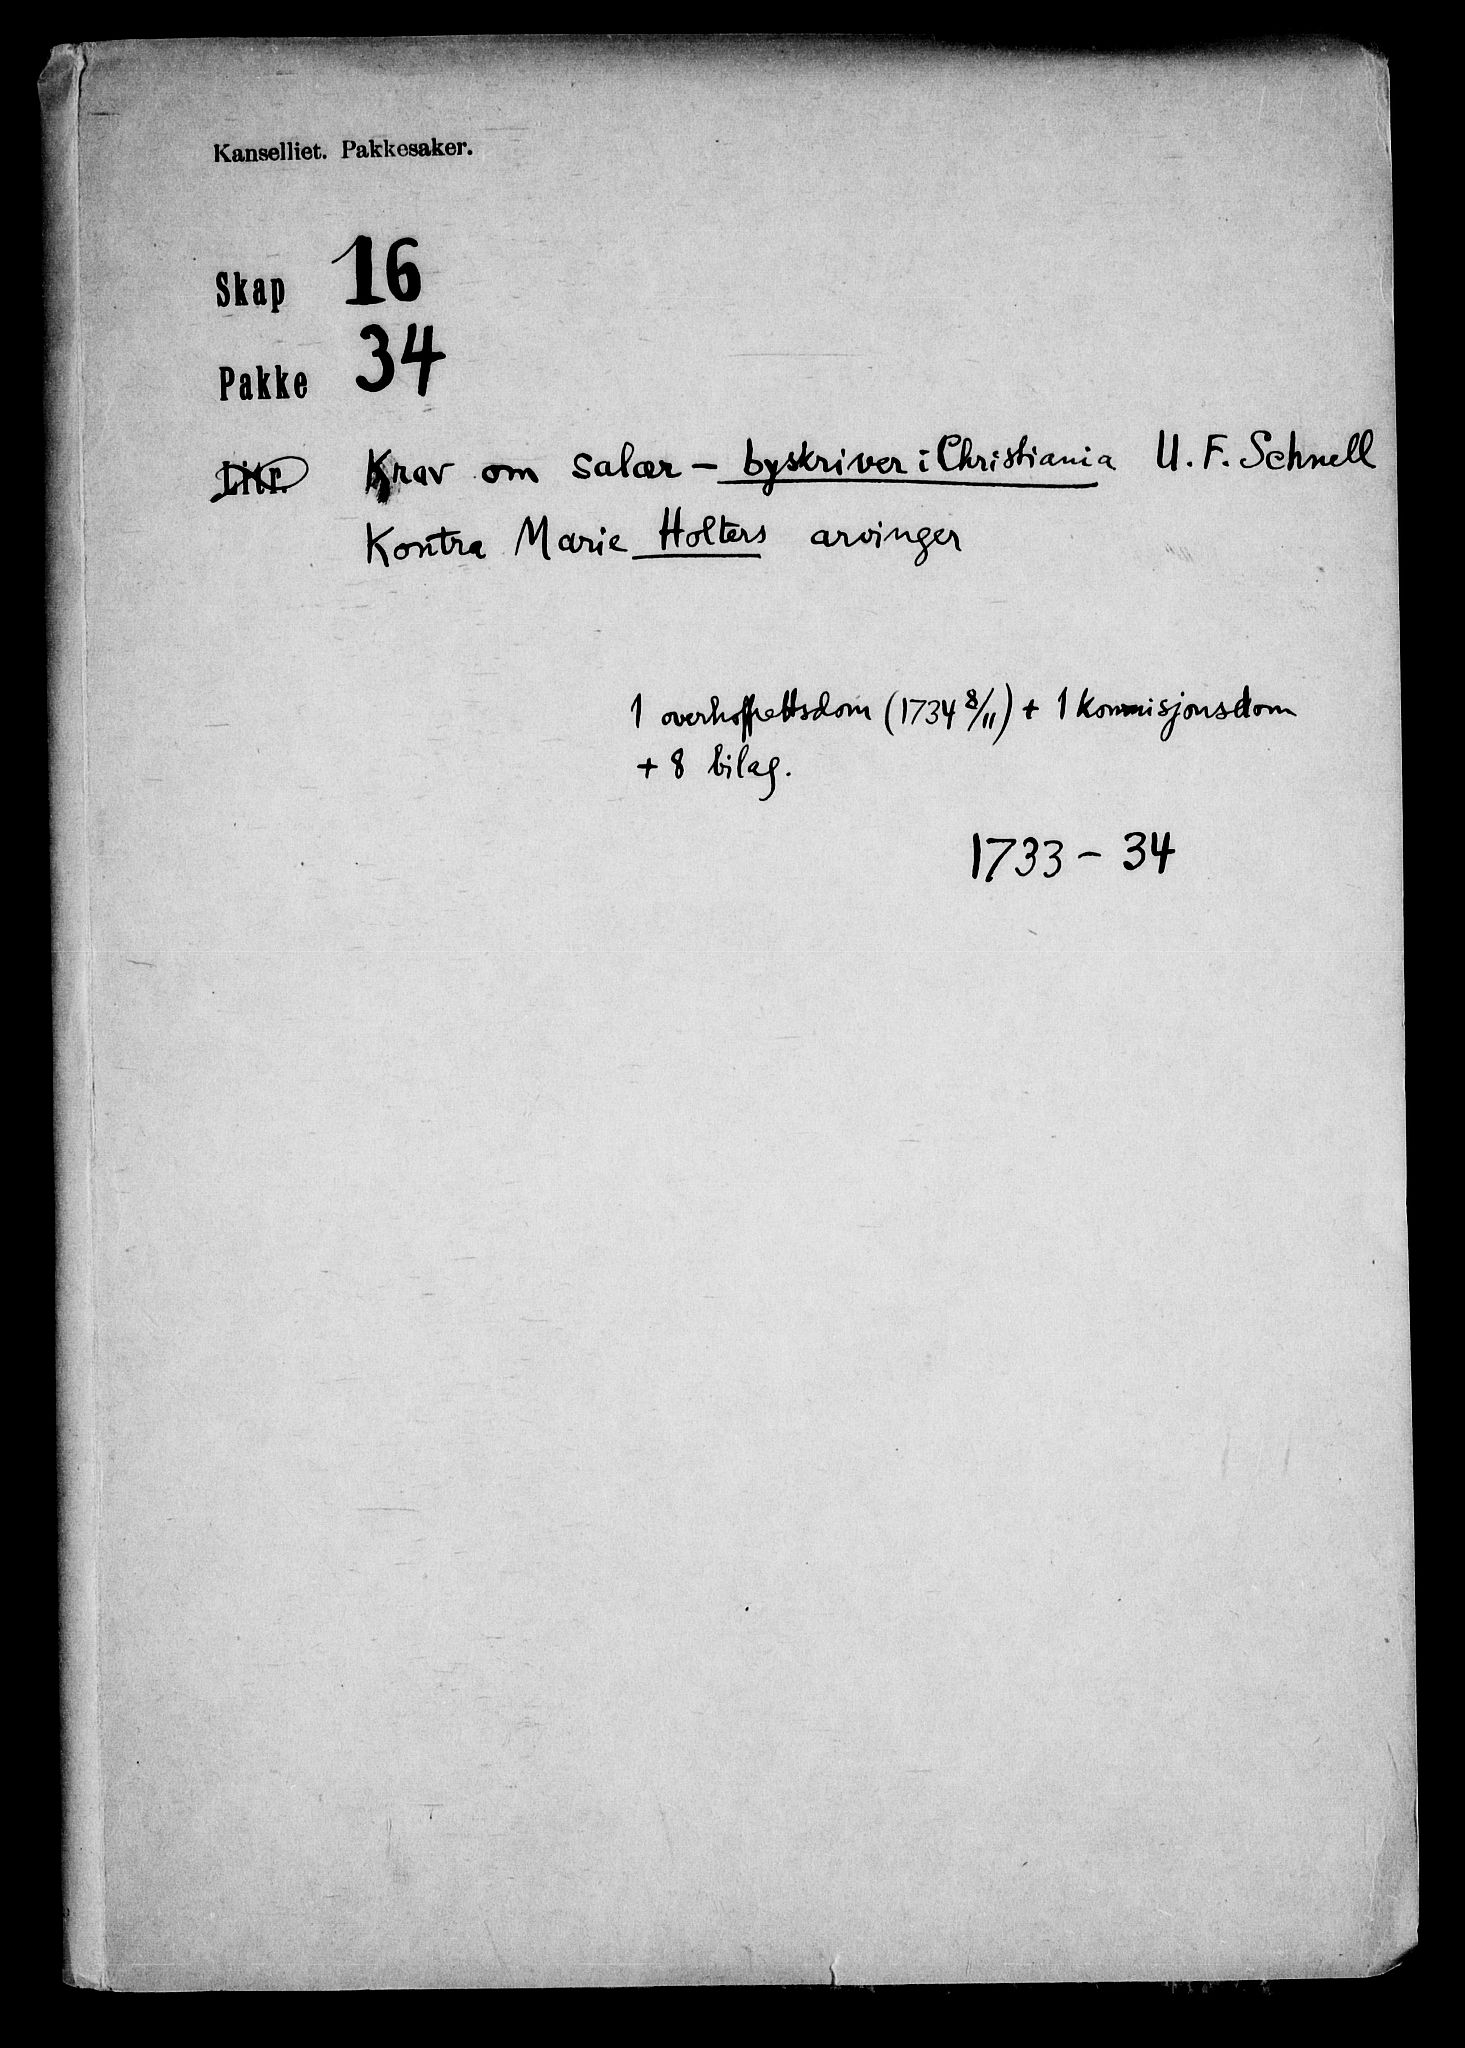 Kanselliet. Pakkesaker.
Skap 16
Pakke 34
Litr. Krav om salær – byskriver i Christiania U. F. Schnell
Kontra Marie Holters arvinger
1 overhoffrettsdom (1734 8/11) + 1 kommisjonsdom
+ 8 bilag.
1733 – 34